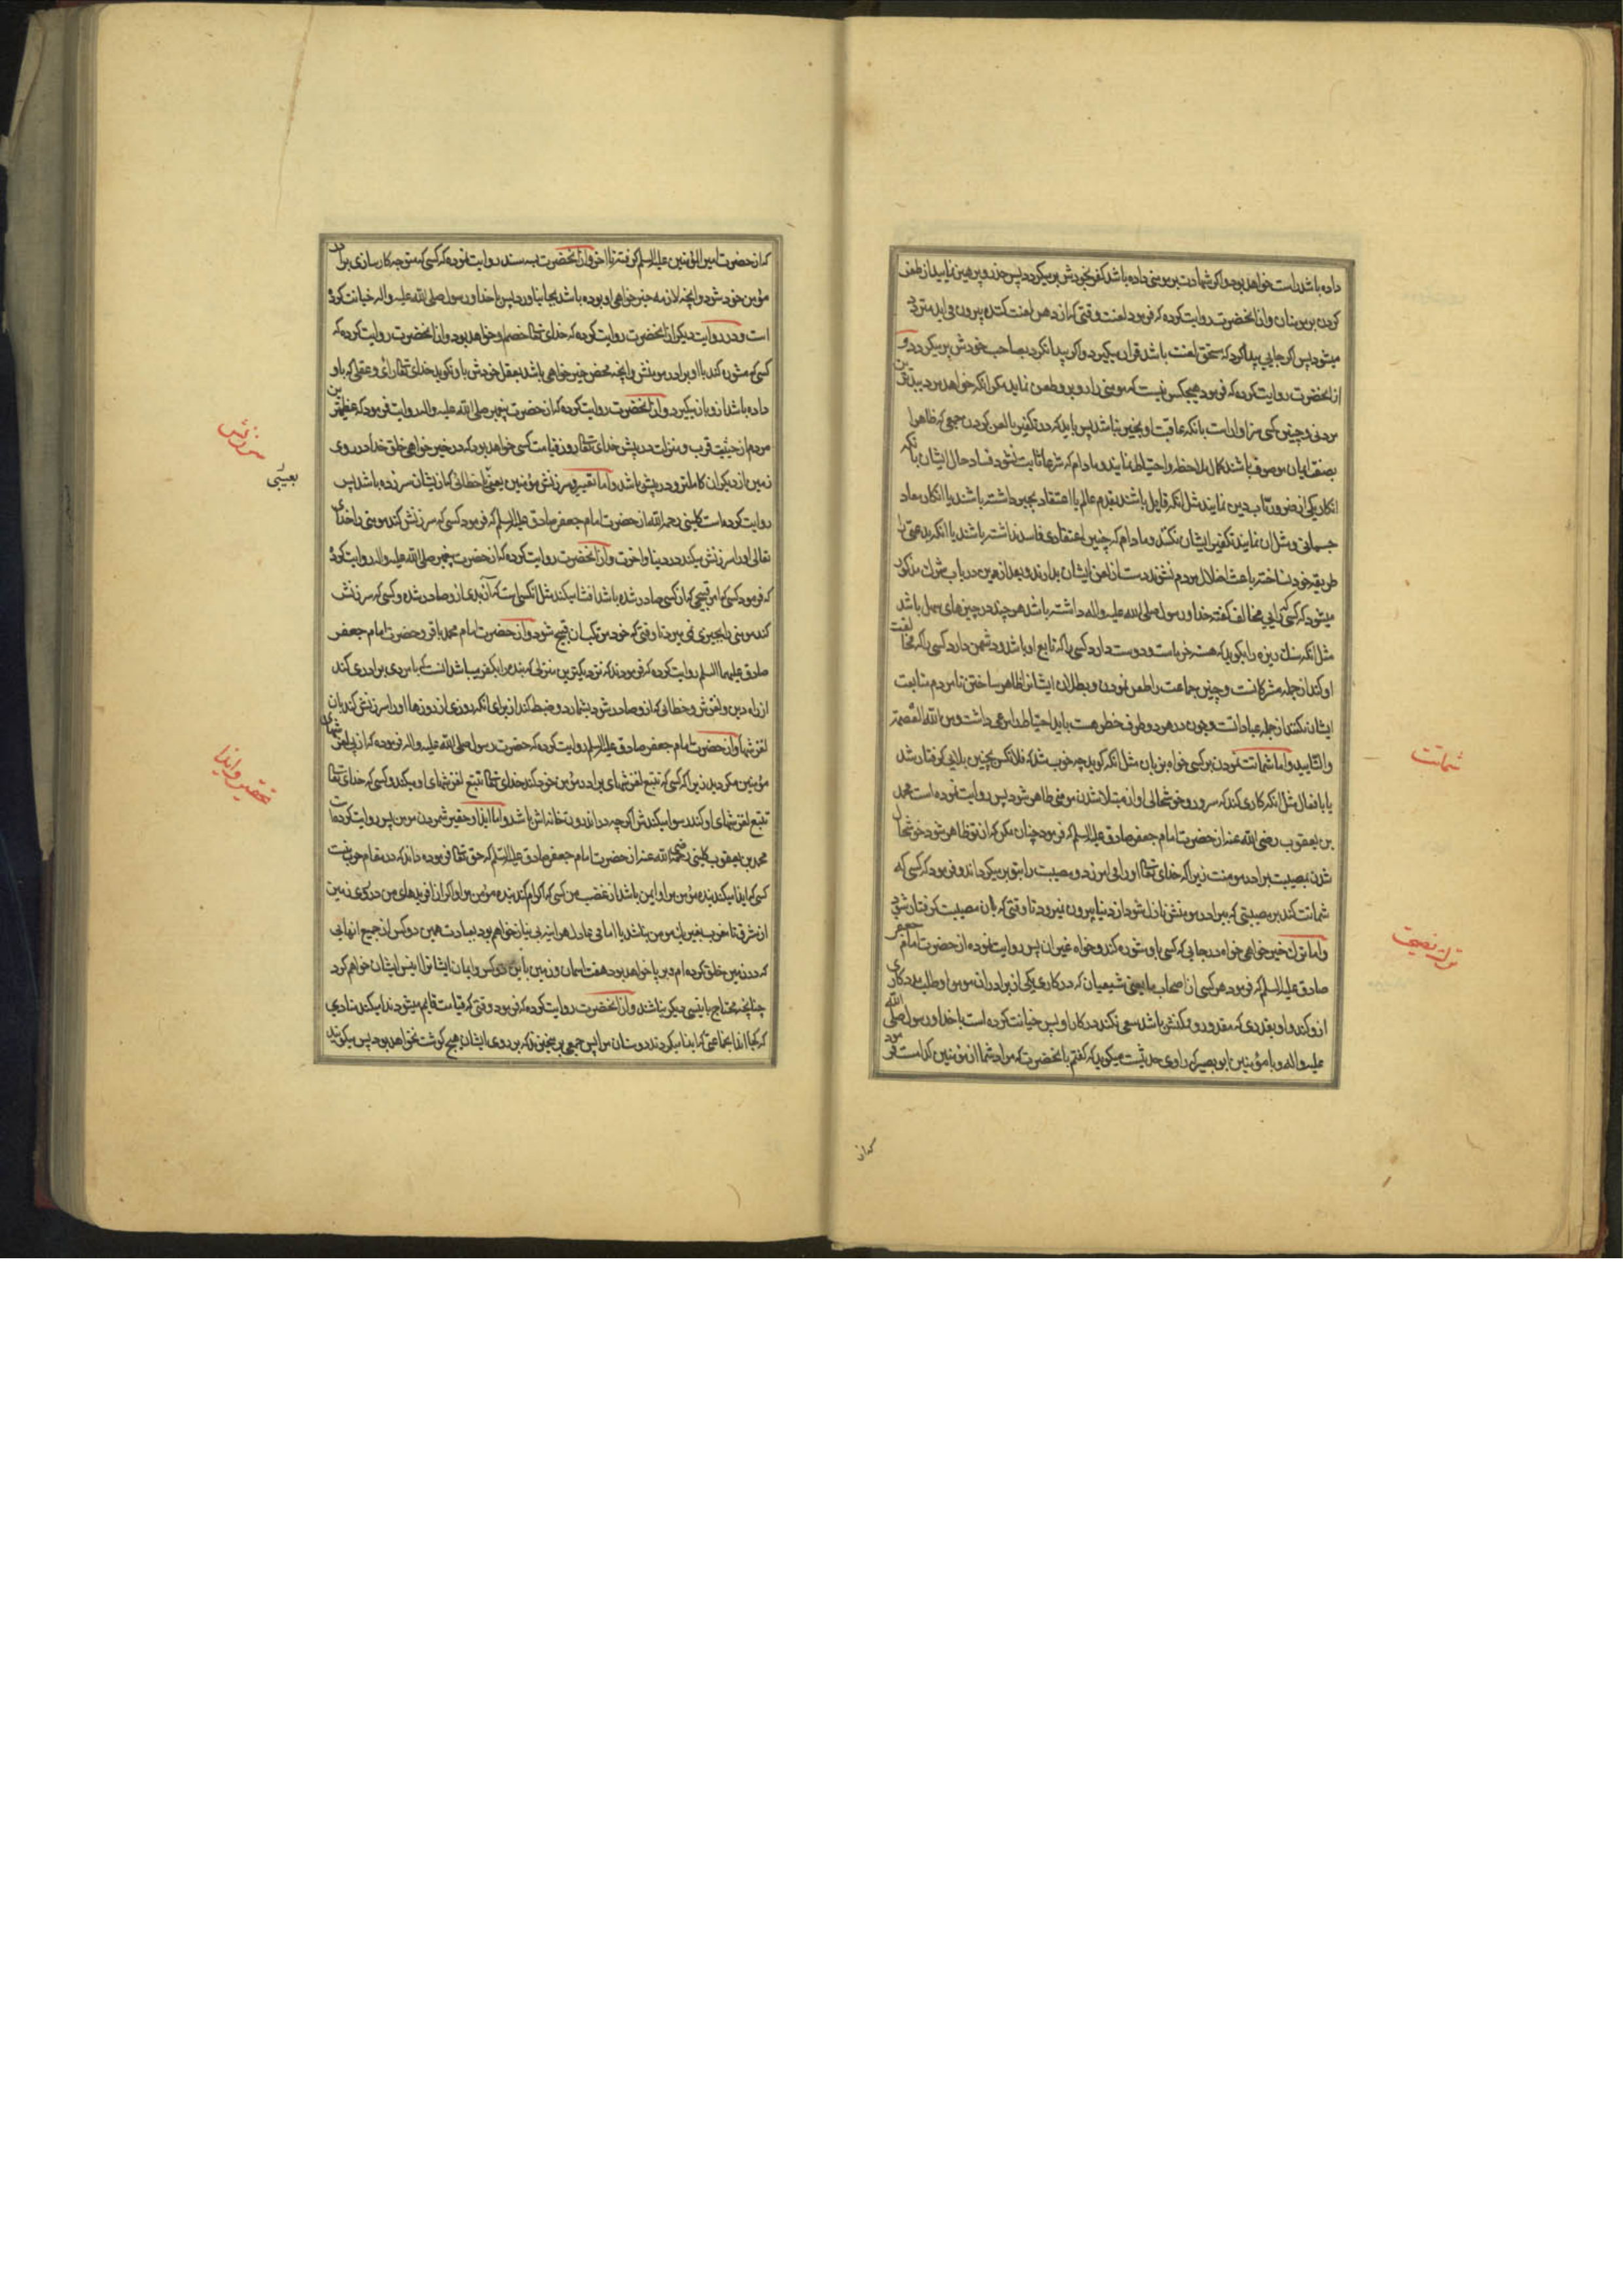 داده باشد راست خواهد بود و اگر شهادت بر مومنی داده باشد کفر بخودش برمیگردد پس حذر و پرهیز نمایید از طعن
کردن بر مومنان و از انحضرت روایت کرده که فرمود لعنت وقتی که از دهن لعنت کننده بیرون می اید متردد
میشود پس اگر جایی پیدا کرد که مستحق لعنت باشد قرار میگیرد و اگر پیدا نکرد بصاحب خودش برمیگردد و
از انحضرت روایت کرده که فرمود هیچکس نیست که مومنی را رو برو طعن نماید مگر انکه خواهد مرد ببدترین
مردنی و چنین کسی سزاوار است بانکه عاقبت او بخیر نباشد پس باید که در تکفیر یا لعن کردن جمعی که ظاهرا
بصفت ایمان موصوف باشند کمال ملاحظه و احتیاط نمایند و مادام که شرعا ثابت نشود فساد حال ایشان بانکه
انکار یکی از ضروریات دین نمایند مثل انکه قایل باشند بقدم عالم یا اعتقاد بجبر داشته باشند یا انکار معاد
جسمانی و مثل ان نمایند تکفیر ایشان نکنند و مادام که چنین اعتقادی فاسد نداشته باشند یا انکه بدعتی را
طریقه خود نساخته باعث اضلال مردم نشوند دست از لعن ایشان بدارند و بعد ازین در باب شرک مذکور
میشود که کسی که رایی مخالف گفته خدا و رسول صلی الله علیه و اله داشته باشد هر چند در چیزهای سهل باشد
مثل انکه سنک ریزه را بگوید که هسته خرماست و دوست دارد کسی را که تابع او باشد و دشمن دارد کسی را که مخالفت
او کند از جمله مشرکانست و چنین جماعت را طعن نمودن و بطلان ایشانرا ظاهر ساختن تا مردم متابعت
ایشان نکنند از جمله عباداتست و چون در هر دو طرف خطر هست باید احتیاط را مرعی داشت و من الله العصمة
والتایید و اما شماتت نمودن بر کسی خواه بزبان مثل انکه گوید چه خوب شد که فلانکس بچنین بلایی گرفتار شد
یا بافعال مثل انکه کاری کند که سرور و خوشحالی او از مبتلا شدن مومنی ظاهر شود پس روایت نموده است محمد
بن یعقوب رضی الله عنه از حضرت امام جعفر صادق علیه السلم که فرمود چنان مکن که از تو ظاهر شود خوشحال
شدن بمصیبت برادر مومنت زیرا که خدای تعالی او را می امرزد و مصیبت را بتو برمیگرداند و فرمود که کسی که
شماتت کند بر مصیبتی که ببرادر مومنش نازل شود از دنیا بیرون نمیرود تا وقتی که بان مصیبت گرفتار شود
و اما ترک خیر خواهی خواه در جایی که کسی با او مشوره کند و خواه غیر ان پس روایت نموده از حضرت امام جعفر
صادق علیه السلم که فرمود هر کسی از اصحاب ما یعنی شیعیان که در کاری یکی از برادران مومن او طلب مدد کاری
ازو کند و او بقدری که مقدور و ممکنش باشد سعی نکند در کار او پس خیانت کرده است با خدا و رسول صلی الله
علیه و اله و با مؤمنین ابو بصیر که راوی حدیثست میگوید که گفتم بانحضرت که مراد شما از مؤمنین کدامست فرمود
شماتت
ترک نصیحت
که از
که از حضرت امیر المؤمنین علیه السلم گرفته تا اخر و از انحضرت بسه سند روایت نموده که کسی که متوجه کار سازی برادر
مؤمن خود شود و انچه لازمه خیر خواهی او بوده باشد بجا نیاورد پس با خدا و رسول صلی الله علیه و اله خیانت کرده
است و در روایت دیگر از انحضرت روایت کرده که خدای تعالی خصم او خواهد بود و از انحضرت روایت کرده که
کسی که مشوره کند با او برادر مومنش و انچه محض خیر خواهی باشد بعقل خودش باو نگوید خدای تعالی رای و عقلی که باو
داده باشد ازو باز میگیرد و از انحضرت روایت کرده که از حضرت پیغمبر صلی الله علیه و اله روایت فرمود که عظیمترین
مردم از حیثیت قرب و منزلت در پیش خدای تعالی روز قیامت کسی خواهد بود که در خیر خواهی خلق خدا در روی
زمین از دیگران کاملتر و در پیش باشد و اما تعییر و سرزنش مؤمنین یعنی بخطائی که از یشان سر زده باشد پس
روایت کرده است کلینی رحمه الله از حضرت امام جعفر صادق علیه السلم که فرمود کسی که سرزنش کند مومنی را خدای
تعالی او را سرزنش میکند در دنیا و اخرت و از انحضرت روایت کرده که از حضرت پیغمبر صلی الله علیه و اله روایت کرده
که فرمود کسی که امر قبیحی که از کسی صادر شده باشد افشا میکند مثل انکسی است که آن بدی ازو صادر شده و کسی که سرزنش
کند مومنی را بچیزی نمی میرد تا وقتی که خود مرتکب ان قبیح شود و از حضرت امام محمد باقر و حضرت امام جعفر
صادق علیهما السلم روایت کرده که فرمودند که نزدیکترین منزلی که بنده را بکفر میباشد انست که با مردی برادری کند
از راه دین و لغزش و خطائی که ازو صادر شود بشمارد و ضبط کند از برای انکه روزی از روزها او را سرزنش کند بان
لغزشها و از حضرت امام جعفر صادق علیه السلم روایت کرده که حضرت رسول صلی الله علیه و اله فرموده که از پی لغزشهای
مؤمنین مگردید زیرا که کسی که تتبع لغزشهای برادر مؤمن خود کند خدای تعالی تتبع لغزشهای او میکند و کسی که خدای تعالی
تتبع لغزشهای او کند رسوا میکندش اگر چه در اندرون خانه اش باشد و اما ایذا و حقیر شمردن مومن پس روایت کرده است
محمد بن یعقوب کلینی رضی الله عنه از حضرت امام جعفر صادق علیه السلم که حق تعالی فرموده داند که در مقام حرب منست
کسی که ایذا میکند بنده مؤمن مرا و ایمن باشد از غضب من کسی که اکرام کند بنده مؤمن مرا و اگر از افریدهای من در روی زمین
از مشرق تا مغرب بغیر یک مومن نباشد با امامی عادل هر اینه بی نیاز خواهم بود بعبادت همین دو کس از جمیع انهایی
که در زمین خلق کرده ام و بر پا خواهد بود هفت اسمان و زمین باین دو کس و ایمان ایشانرا انیس ایشان خواهم کرد
چنانچه محتاج بانیسی دیگر نباشند و از انحضرت روایت کرده که فرمود وقتی که قیامت قایم میشود ندا میکند منادی
که کجا اند انجماعتی که ایذا میکردند دوستان مرا پس جمعی بر میخیزند که بر روی ایشان هیچ گوشت نخواهد بود پس میگویند
سرزنش
بعیبی
تحقیر و ایذا